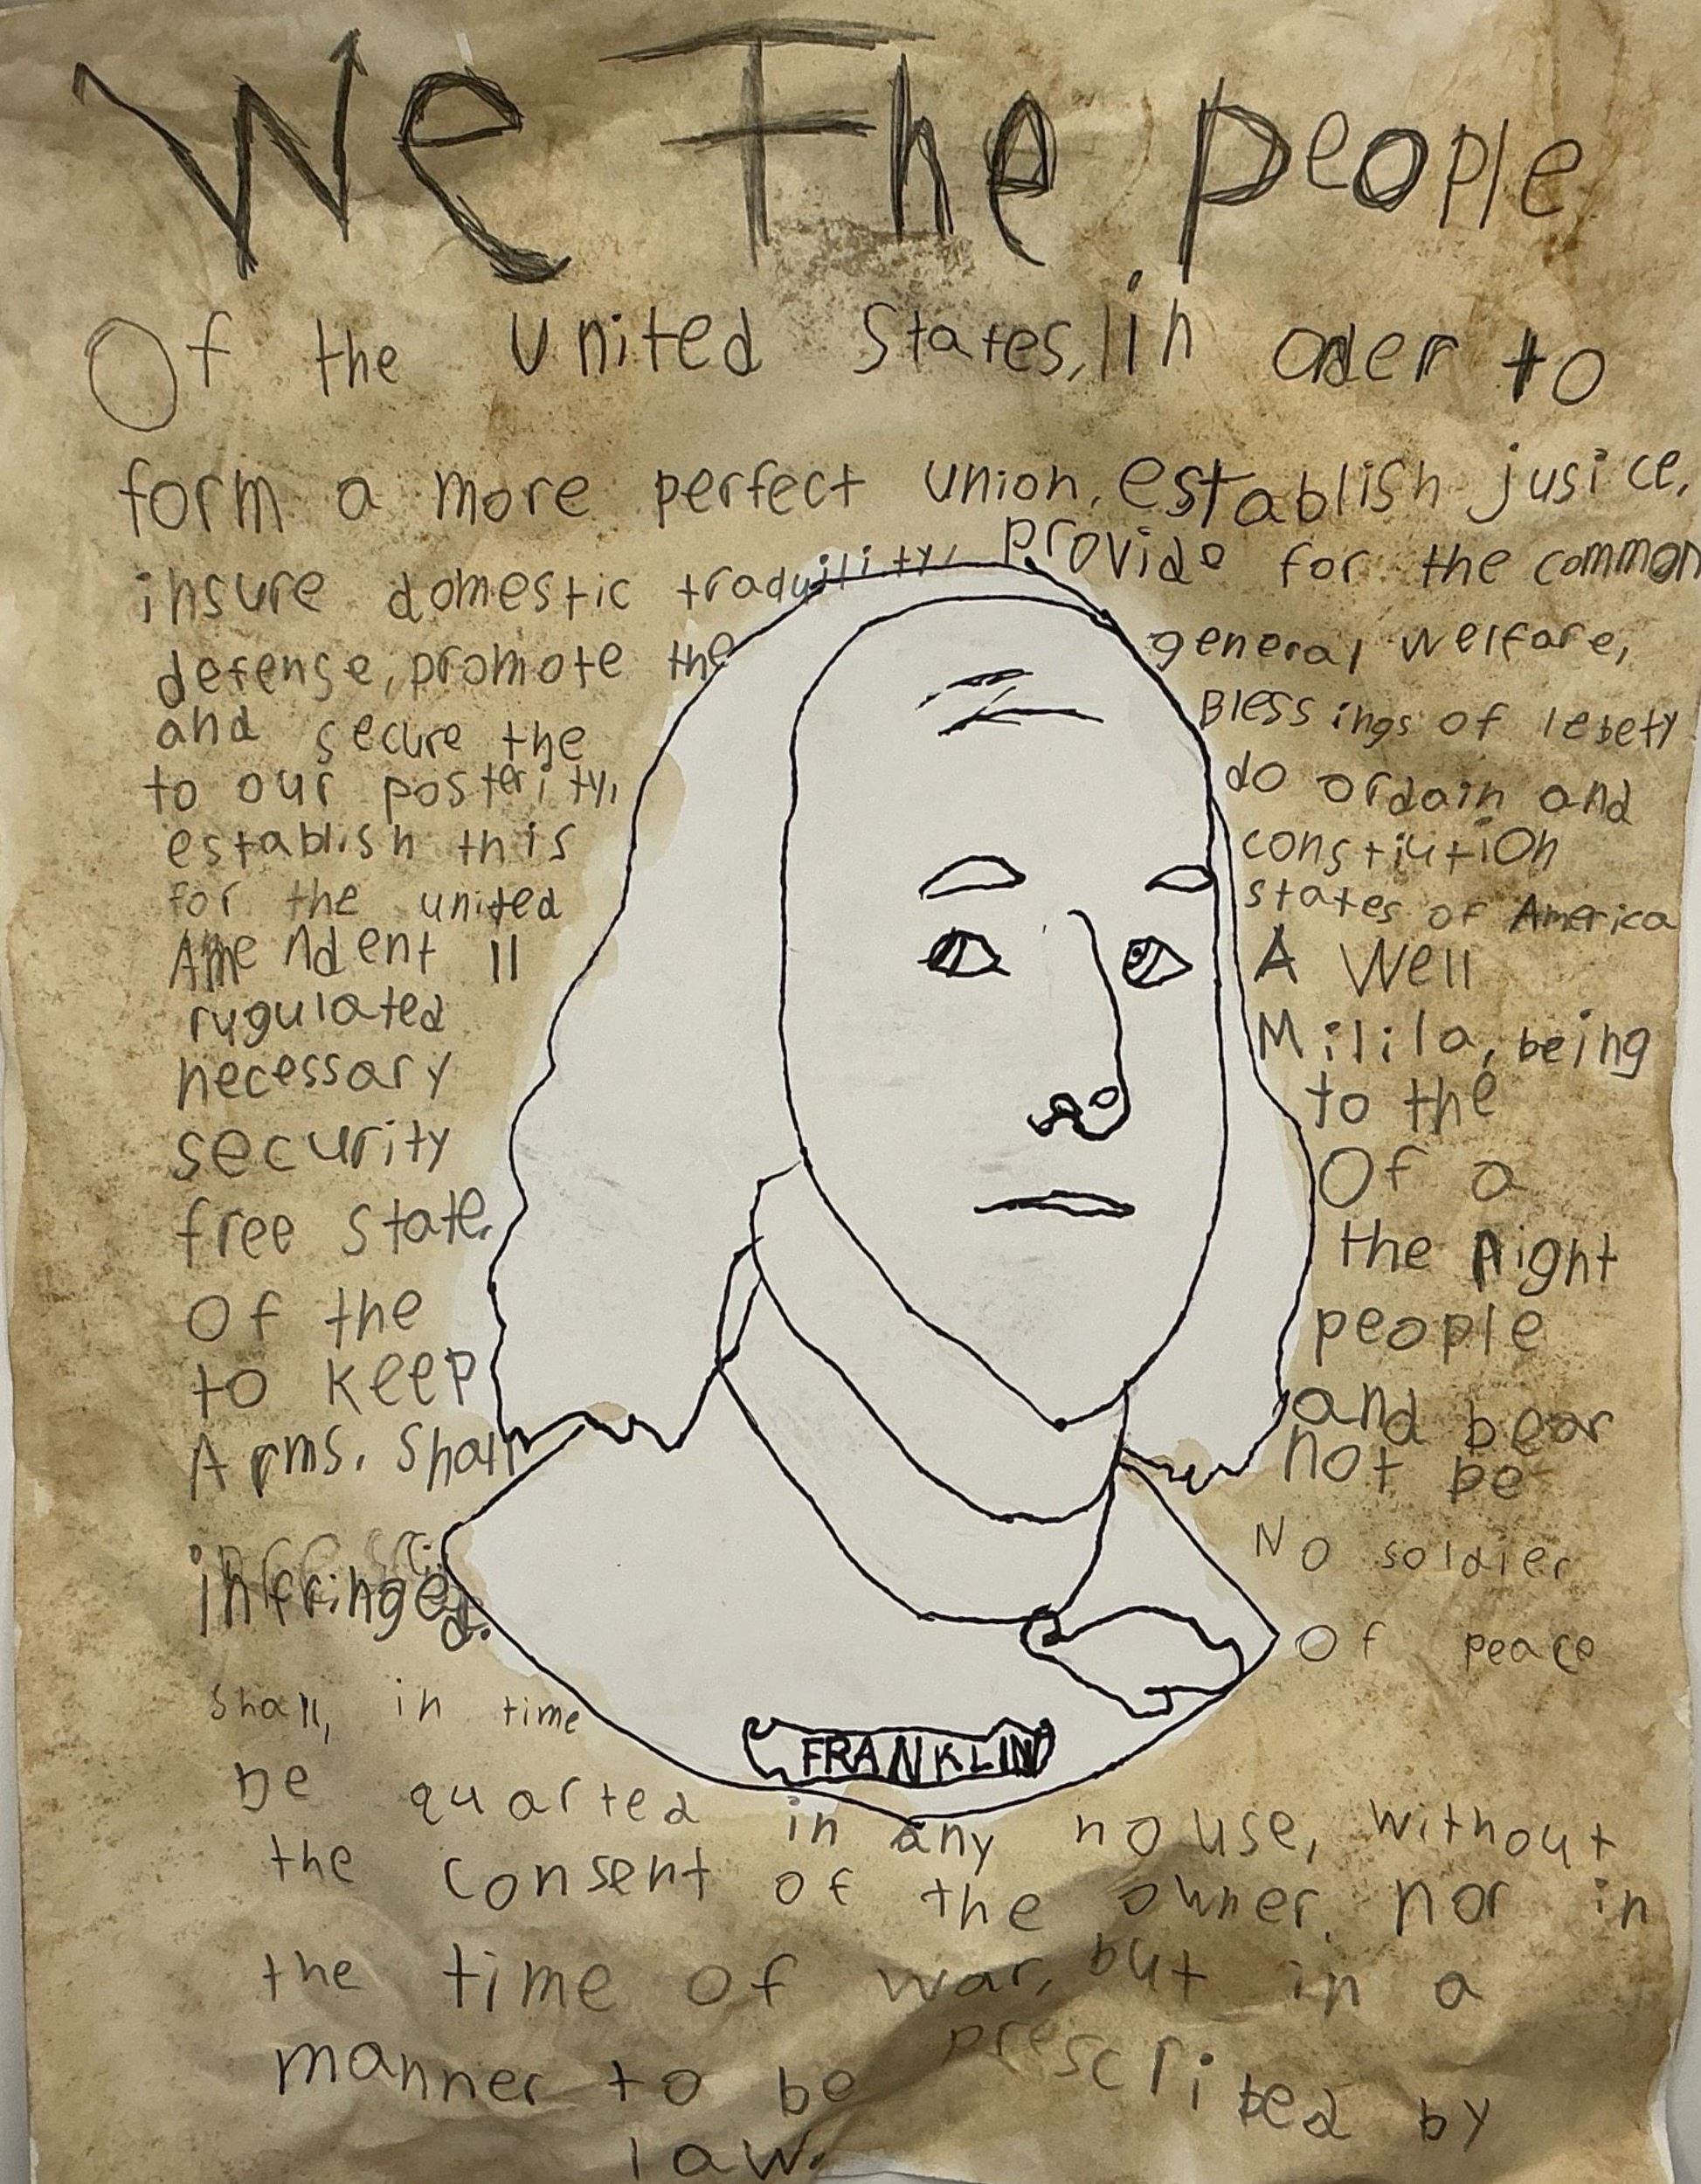 We The people
Of the United States, in order to
form a more perfect union, establish jusice,
insure domestic traduility, provide for the common
defense, promote the general welfare,
and secure the Blessings of lebety
to our posterity, do ordain and
establish this constiution
for the united states of America
Amendent II A Well
rugulated Milila, being
necessary to the
security Of a
free state, the Right
Of the people
to keep and bear
Arms, Shall not be
infringed. No soldier
shall, in time Of peace
be quarted in any house, without
the consent of the owner, nor in
the time of war, but in a
manner to be prescribed by
law.
FRANKLIN